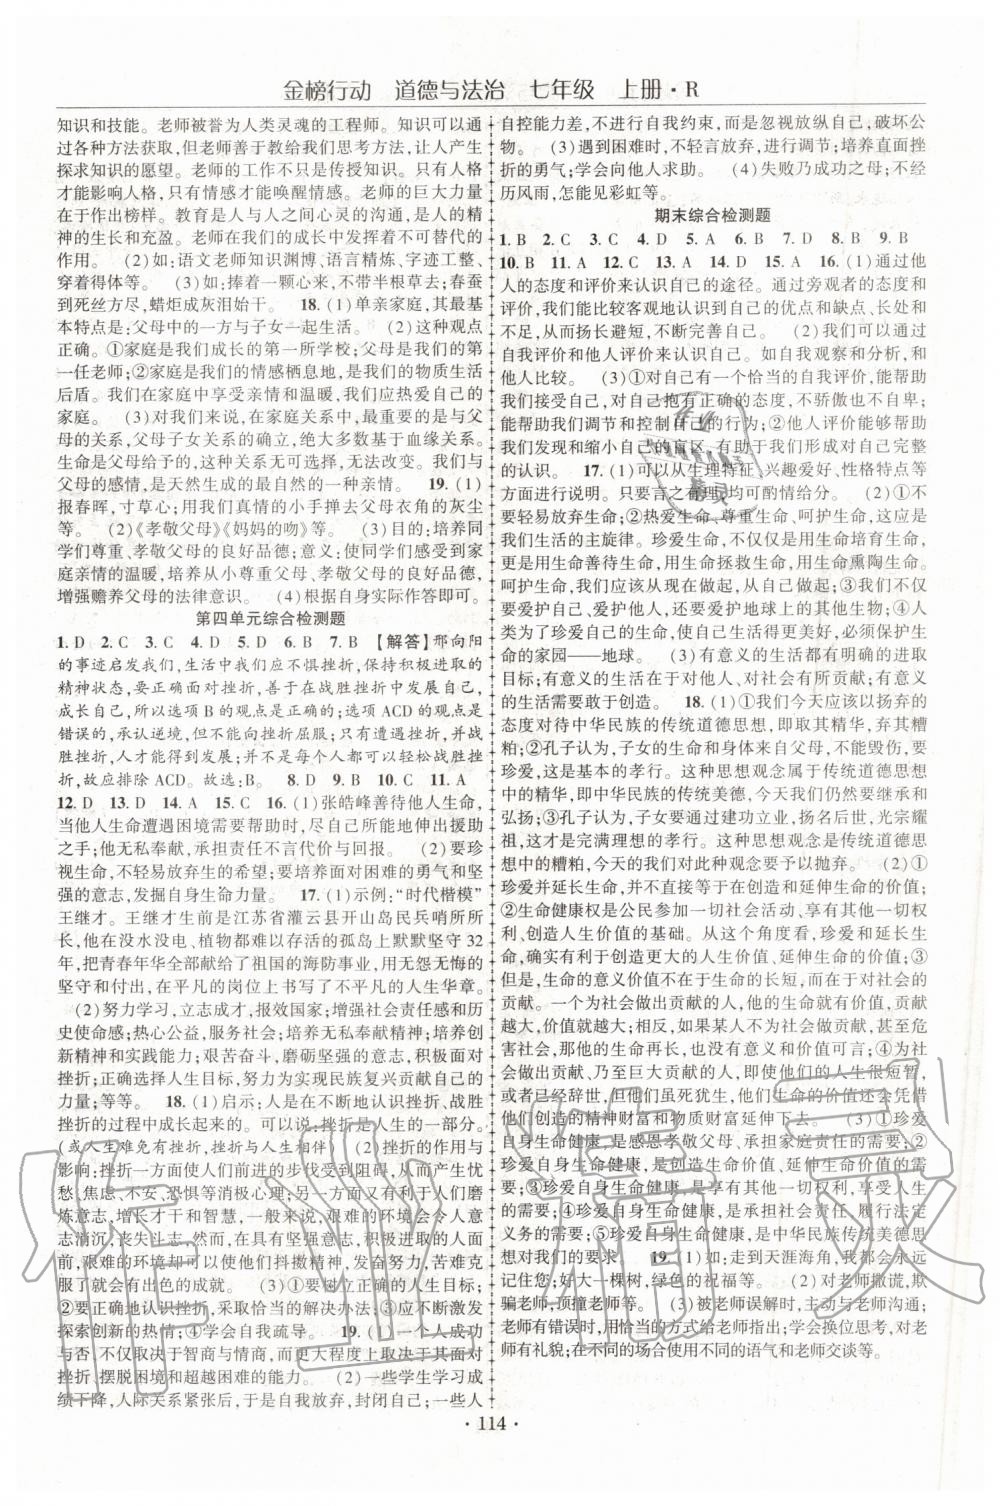 金榜行动 道德与法治 七年级 上册·R
知识和技能。老师被誉为人类灵魂的工程师。知识可以通过
各种方法获取,但老师善于教给我们思考方法,让人产生
探求知识的愿望。老师的工作不只是传授知识。只有人格
才能影响人格,只有情感才能唤醒情感。老师的巨大力量
在于作出榜样。教育是人与人之间心灵的沟通,是人的精
神的生长和充盈。老师在我们的成长中发挥着不可替代的
作用。 (2)如:语文老师知识渊博、语言精炼、字迹工整、
穿着得体等。 (3)如:捧着一颗心来,不带半根草去;春蚕
到死丝方尽,蜡炬成灰泪始干。 18. (1)单亲家庭,其最基
本特点是:父母中的一方与子女一起生活。 (2)这种观点
正确。①家庭是我们成长的第一所学校;父母是我们的第
一任老师;②家庭是我们的情感栖息地,是我们的物质生活
后盾。我们在家庭中享受亲情和温暖,我们应热爱自己的
家庭。 (3)对我们来说,在家庭关系中,最重要的是与父
母的关系。父母子女关系的确立,绝大多数基于血缘关系。
生命是父母给予的,这种关系无可选择,无法改变。我们与
父母的感情,是天然生成的最自然的一种亲情。 19. (1)
报春晖,寸草心;用我们真真的小手掸去父母衣角的灰尘
等。 (2)《孝敬父母》《妈妈的吻》等。 (3)目的:培养同
学们尊敬、孝敬父母的良好品德;意义;使同学们感受到家
庭亲情的温暖,培养从小尊重父母、孝敬父母的良好品德,
增强赡养父母的法律意识。 (4)根据自身实际作答即可。
第四单元综合检测题
1. D 2. C 3. C 4. D 5. D 6. B 7. B 【解答】邢向阳
的事迹启发我们,生活中我们应不惧挫折,保持积极进取的
精神状态,要正确面对挫折,善于在战胜挫折中发展自己,
成长自己,所以选项 B 的观点是正确的;选项 ACD 的观点是
错误的,承认逆境,但不向其屈服。只有遭遇挫折,并且战
胜挫折,人才能得到发展;并不是每个人都可以轻松战胜挫
折,故应排除 ACD。故选:B。 8. D 9. D 10. C 11. A
12. D 13. D 14. D 15. C 16. (1)张皓峰善待他人生命,
当他人生命遭遇困境需要帮助时,尽自己所能地伸出援助
之手;他无私奉献,承担责任不言代价与回报。 (2)要珍
视生命,不轻易放弃生的希望;要培养面对困难的勇气和坚
强的意志,发掘自身生命力量。 17. (1)示例:“时代楷模”
王继才。王继才生前是江苏省灌云县开山岛民兵哨所所
长,他在没水没电、植物都难以存活的孤岛上默默坚守 32
年,把青春年华全部献给了祖国的海防事业,用无怨无悔的
坚守和付出,在平凡的岗位上书写了不平凡的人生华章。
(2)努力学习,立志成才,报效国家;增强社会责任感和历
史使命感;热心公益,服务社会;培养无私奉献精神;培养创
新精神和实践能力。艰苦奋斗,磨砺坚强的意志,积极面对
挫折,正确选择人生目标,努力为实现民族复兴贡献自己的
力量;等等。 18. (1)启示:人是在不断地认识挫折、战胜
挫折的过程中成长起来的。可以说,挫折是人生的一部分。
(或人生难免有挫折,挫折与人生相伴) (2)挫折的作用与
影响:挫折一方面使人们前进的步伐受到阻碍,从而产生忧
愁、焦虑、不安、恐惧等消极心理;另一方面有利于人们磨
炼意志,增长才干和智慧。一般来说,艰难的环境会令人意
志消沉,丧失斗志,但如果能坚定目标,积极进取,勇往直
前,艰难的环境却能催人们抖擞精神,发奋努力,苦难难克
服,就会有出色的成就。 (3)①要树立正确的人生目标;
②要及时准确地认识挫折,采取恰当的解决办法;③激发
探索创新的热情;④学会自我疏导。 19. (1)一个人成功
与否,不仅取决于智商与情商,而更大程度上取决于其面对
挫折,摆脱困境和超越困难的能力。 (2)一些学生学习成
绩下降,人际关系紧张后,于是自我放弃;沉迷网络;一些人
自控能力差,不进行自我约束,而是忽视放纵自己,破坏公
物。 (3)遇到困难时,不轻言放弃,进行调节;培养直面挫
折的勇气;学会向他人求助。 (4)失败乃成功之母;不经
历风雨,怎能见彩虹等。
期末综合检测题
1. B 2. C 3. C 4. D 5. A 6. B 7. D 8. B 9. B
10. B 11. A 12. C 13. C 14. D 15. A 16. (1)通过他
人的态度和评价来认识自己的途径。通过旁观者的态度和
评价,我们能比较客观地认识到自己的优点和缺点、长处和
不足,从而扬长避短,不断完善自己。 (2)我们可以通过
自我评价和他人评价来认识自己。如自我观察和分析,和
他人比较。 (3)①对自己有一个恰当的自我评价,能帮助
我们,对自己抱有正确的态度,不骄傲也不自卑;
能帮助我们调节和控制自己的行为;②他人评价能够帮助
我们发现和缩小自己的盲区,有助于我们形成对自己完整
的认识。 17. (1)可以从生理特征、兴趣爱好、性格特点等
方面进行说明。只要言之有理,均可酌情给分。 (2)①不
要轻易放弃生命;②热爱生命、尊重生命、呵护生命,这应是
我们生活的主旋律。珍爱生命,不仅仅是用生命培育生命,
更是用生命善待生命,用生命拯救生命,用生命熏陶生命。
呵护生命,意味着我们应该从现在做起,从自己做起;③我
们不仅要爱护自身生命,还要爱护地球上的其他生命,因为
生命的共同存在才使得我们的生活更美好,必须保护生
命的家园——地球。 (3)有意义的生活都有明确的进取
目标;有意义的生活总是对自己、对他人、对社会有贡献的
生活;有意义的生活需要敢于创造。 18. (1)①我们今天应该以扬弃的
态度对待中华民族的传统道德思想,即取其精华,弃其糟
粕;②孔子认为,子女的生命和身体来自父母,不能毁伤,要
珍爱,这是最基本的孝行。这种思想观念属于传统道德思想
中的精华,即中华民族的传统美德,对此我们要继承和
弘扬;③孔子认为,子女要通过建功立业,扬名后世,光宗耀
祖,这才是完满理想的孝行。这种思想观念是传统道德思
想中的糟粕,今天的我们对此种观念要予以抛弃。 (2)①
珍爱并延长生命,并不仅仅在于创造和延伸生命的价值;
②生命健康权是公民参加一切社会活动,享受其他一切权
利、创造人生价值的基础。从这个角度看,珍爱和延长生
命,有利于创造更大的人生价值、延伸生命的价值;③
但是,生命的意义价值不在于生命的长短,而在于对社会的
贡献。一个为社会做出贡献的人,他的生命就有价值,贡献
越大,价值就越大;相反,如果某人不为社会做出贡献,甚至
危害社会,那他的生命再长,也没有意义和价值可言;④为
社会做出巨大贡献的人,他们的生命虽然是短暂的,
或者已经辞世,但他们虽死犹生,他们的价值会凭借
他们创造的精神财富和物质财富延伸下去。 (3)①珍爱
自身生命健康,是感恩孝敬父母、承担家庭责任的需要;②
珍爱自身生命健康,是创造生命价值、延伸生命价值的需
要;③珍爱自身生命健康,是提高生活质量,享受人生
的需要;④珍爱自身生命健康,是承担社会责任,履行法定
义务的需要;⑤珍爱自身生命健康,是中华传统美德思
想对我们的要求。 19. (1)如:走到天涯海角,都会永远
记住您;您好比一棵大树,绿色最浓等。 (2)对老师撒谎,欺
骗老师,顶撞老师等。 (3)被老师误解时,主动与老师沟通;
老师有错误时,用恰当的方式给老师指出;学会换位思考,对老
师有礼貌;在不同的场合使用不同的语气和老师交谈等。
· 114 ·
作业精灵